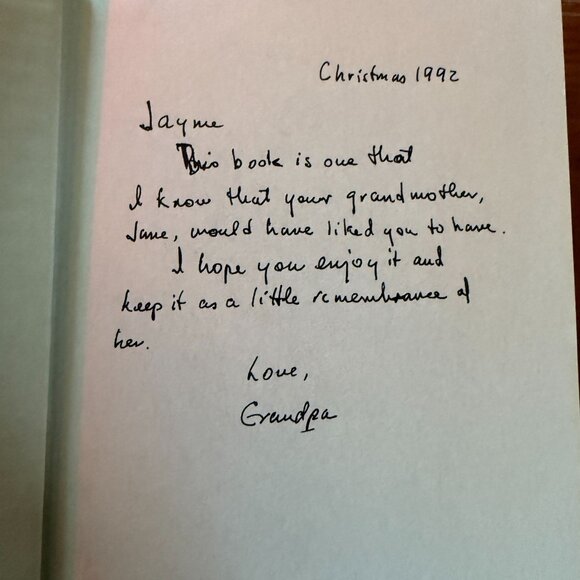 Christmas 1992
Jayme
This book is one that
I know that your grandmother,
Jane, would have liked you to have.
I hope you enjoy it and
keep it as a little remembrance of
her.
Love,
Grandpa